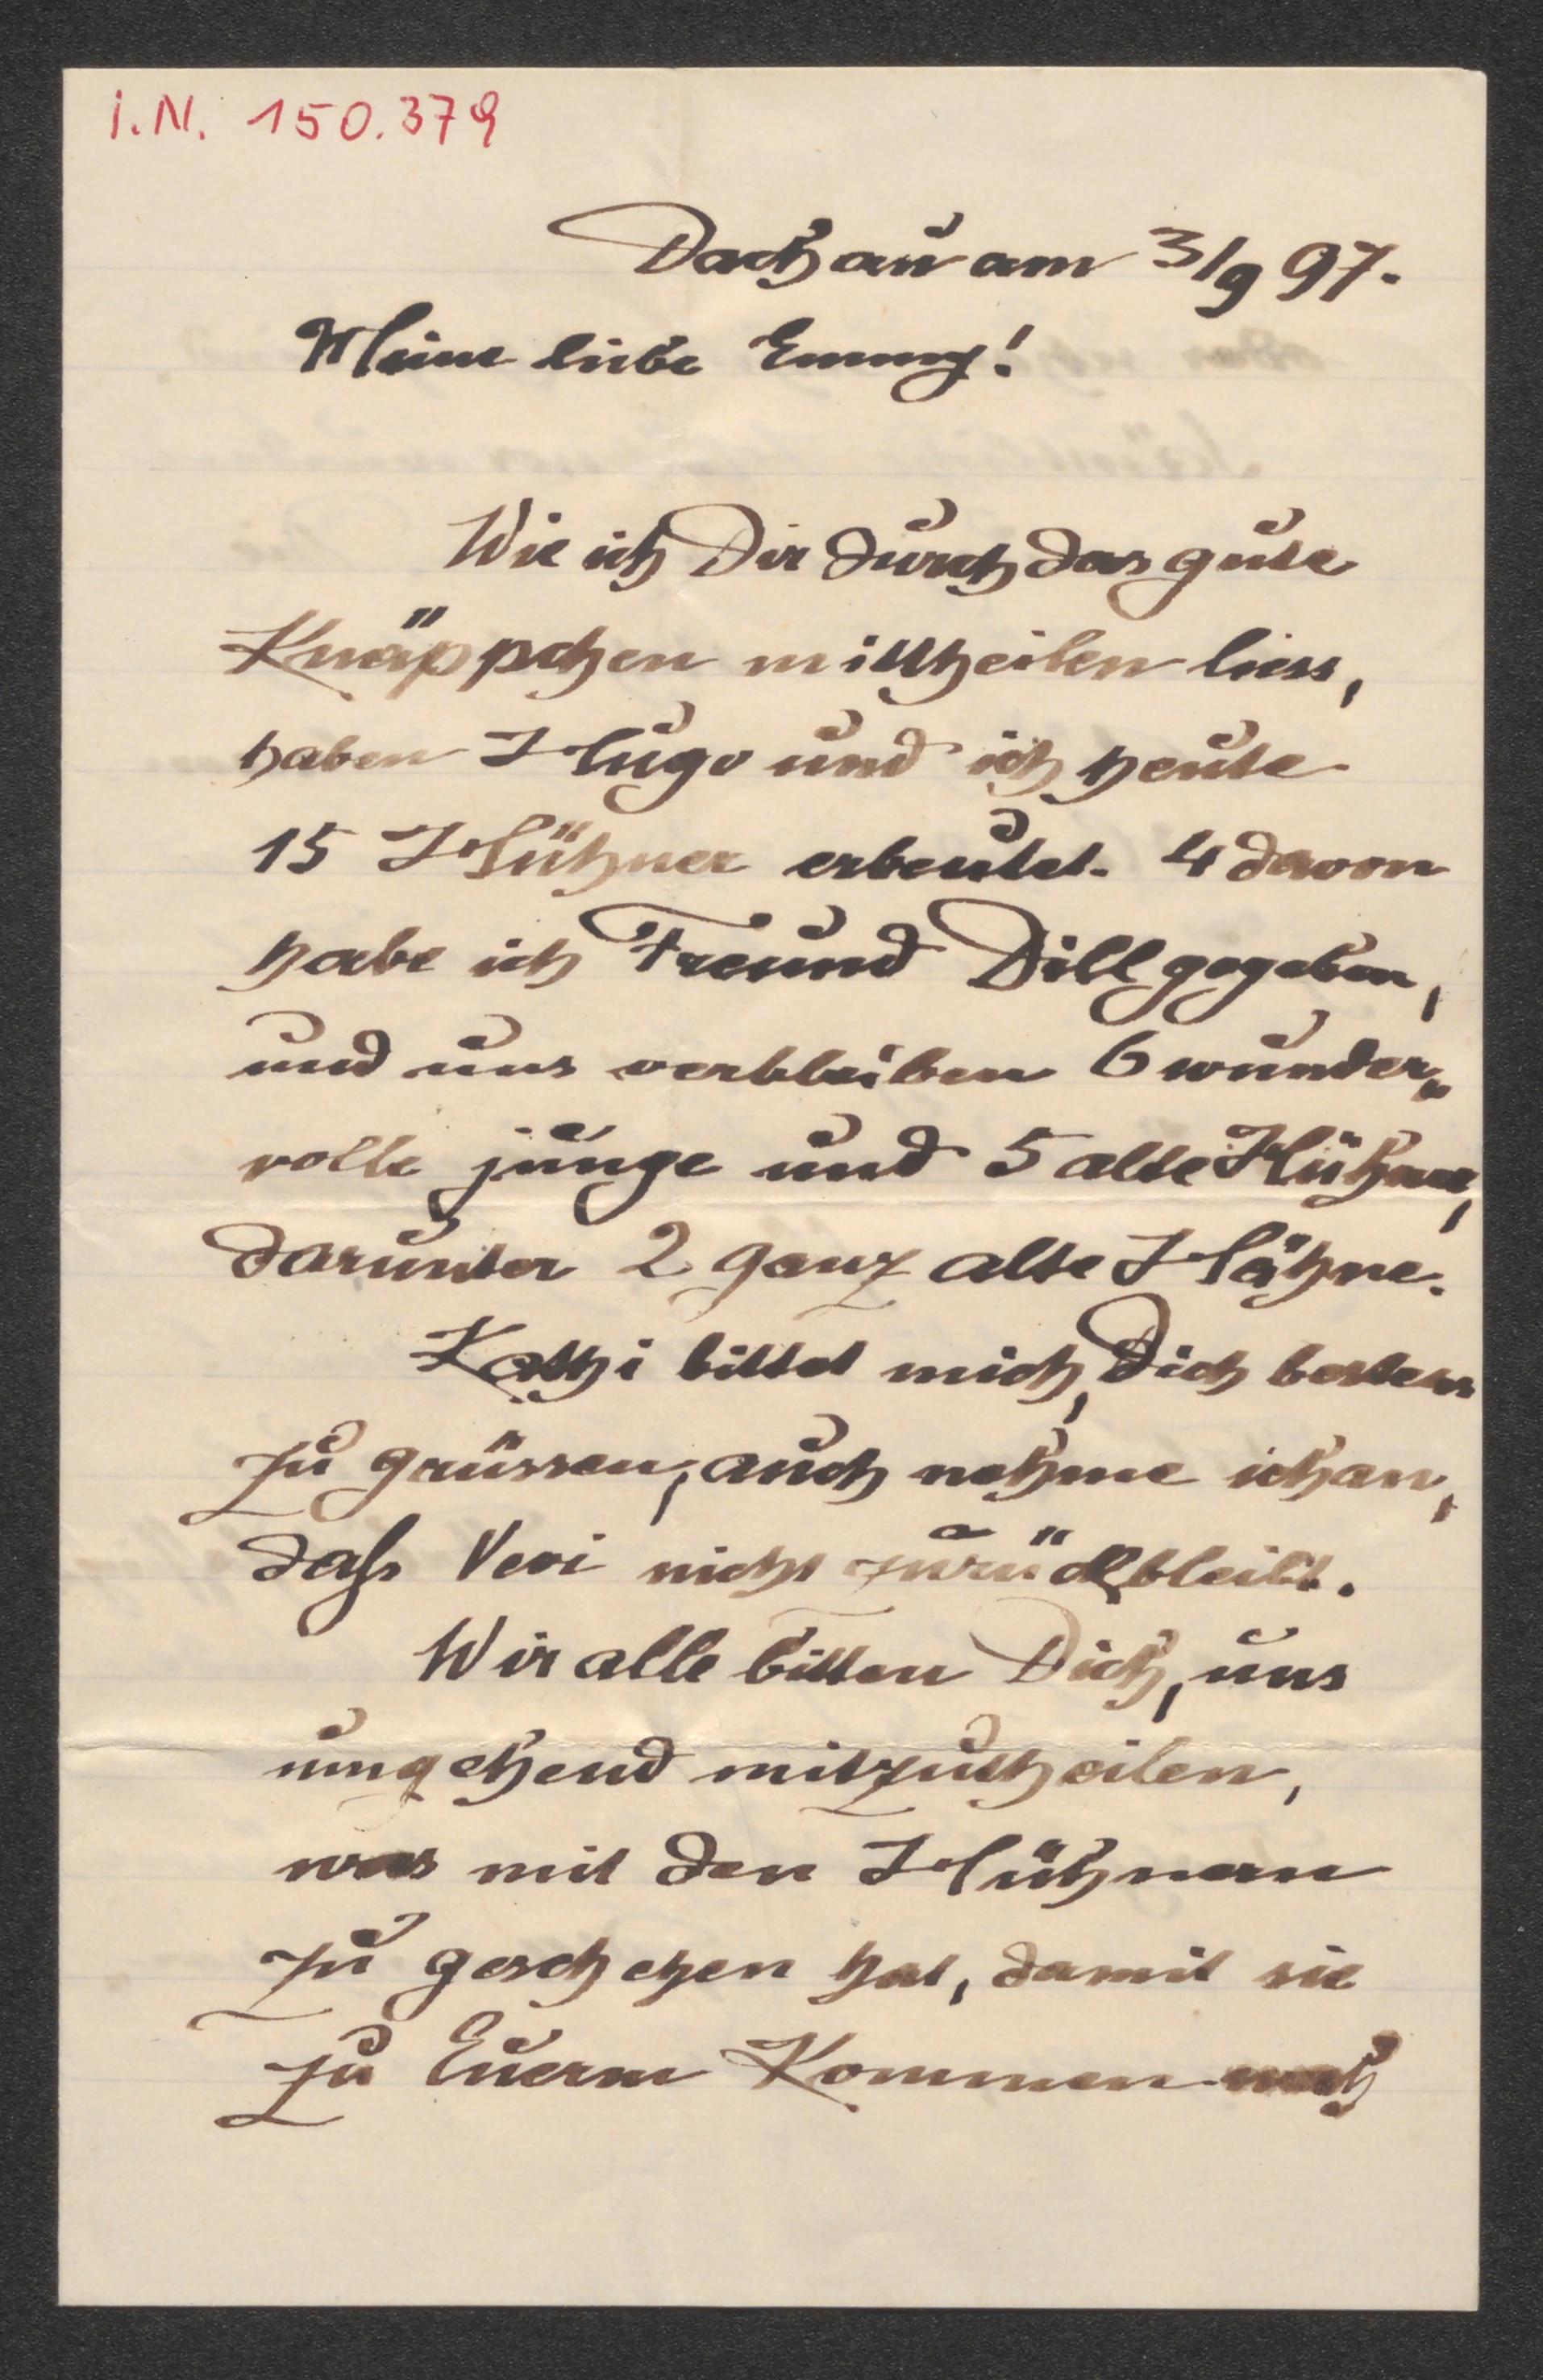 I.N. 150.379
Dachau am 3/9 97.
Meine liebe Emmy!
Wie ich Dir durch das gute
Knäppchen mittheilen liess,
haben Hugo und ich heute
15 Hühner erbeutet. 4 davon
habe ich Freund Dill gegeben,
und uns verbleiben 6 wunder„
volle junge und 5 alte Hühner,
darunter 2 ganz alte Hähne.
Kathi bittet mich, Dich bestens
zu grüssen, auch nehme ich an,
daß Veri nicht zurückbleibt.
Wir alle bitten Dich, uns
umgehend mitzutheilen,
was mit den Hühnern
zu geschehen hat, damit sie
zu Euerm Kommen noch